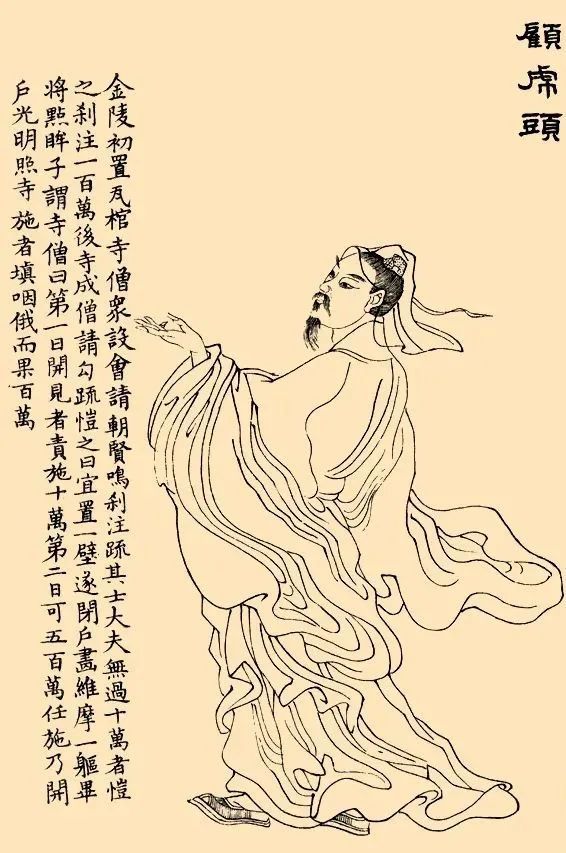 顧虎頭
金陵初置瓦棺寺僧衆設會請朝賢鳴刹注疏其士大夫無過十萬者愷
之刹注一百萬後寺成僧請勾疏愷之曰宜置一壁遂閉戶畫維摩一軀畢
將點眸子謂寺僧曰第一日開見者責施十萬第二日可五百萬任施乃開
戶光明照寺施者填咽俄而果百萬